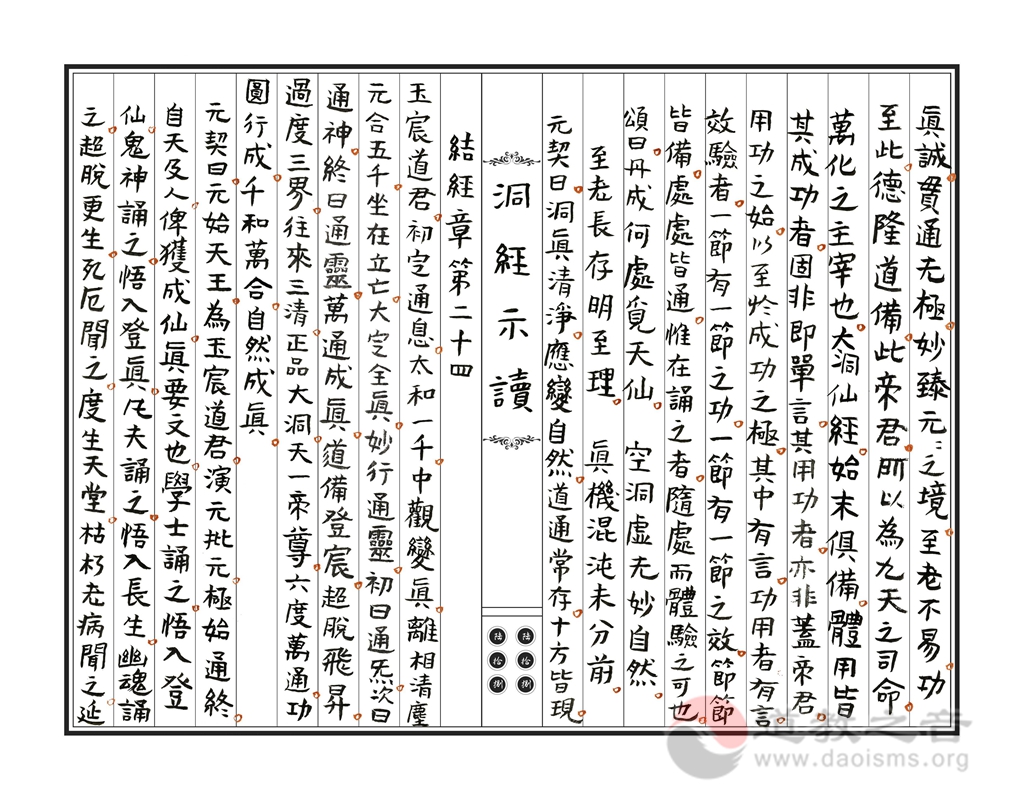 眞誠貫通无極妙臻元元之境至老不易功
至此德隆道備此帝君所以為九天之司命
萬化之主宰也大洞仙經始末俱備體用皆
其成功者固非即單言其用功者亦非蓋帝君
用功之始以至於成功之極其中有言功用者有言
效驗者一節有一節之功一節有一節之效節節
皆備處處皆通惟在誦之者隨處而體驗之可也
頌曰丹成何處覓天仙 空洞虛无妙自然
至老長存明至理 眞機混沌未分前
元契曰洞眞清淨應變自然道通常存十方皆現
洞經示讀
陸拾捌
陸拾捌
結經章第二十四
玉宸道君初字通息太和一千中觀變眞離相清塵
元合五千坐在立亡大字全眞妙行通靈初曰通炁次曰
通神終曰通靈萬通成眞道備登宸超脫飛昇
過度三界往來三清正品大洞天一帝尊六度萬通功
圓行成千和萬合自然成眞
元契曰元始天王為玉宸道君演元批元極始通終
自天及人俾獲成仙眞要文也學士誦之悟入登
仙鬼神誦之悟入登眞凡夫誦之悟入長生幽魂誦
之超脫更生死厄聞之度生天堂枯朽老病聞之延
道教之音
www.daoisms.org